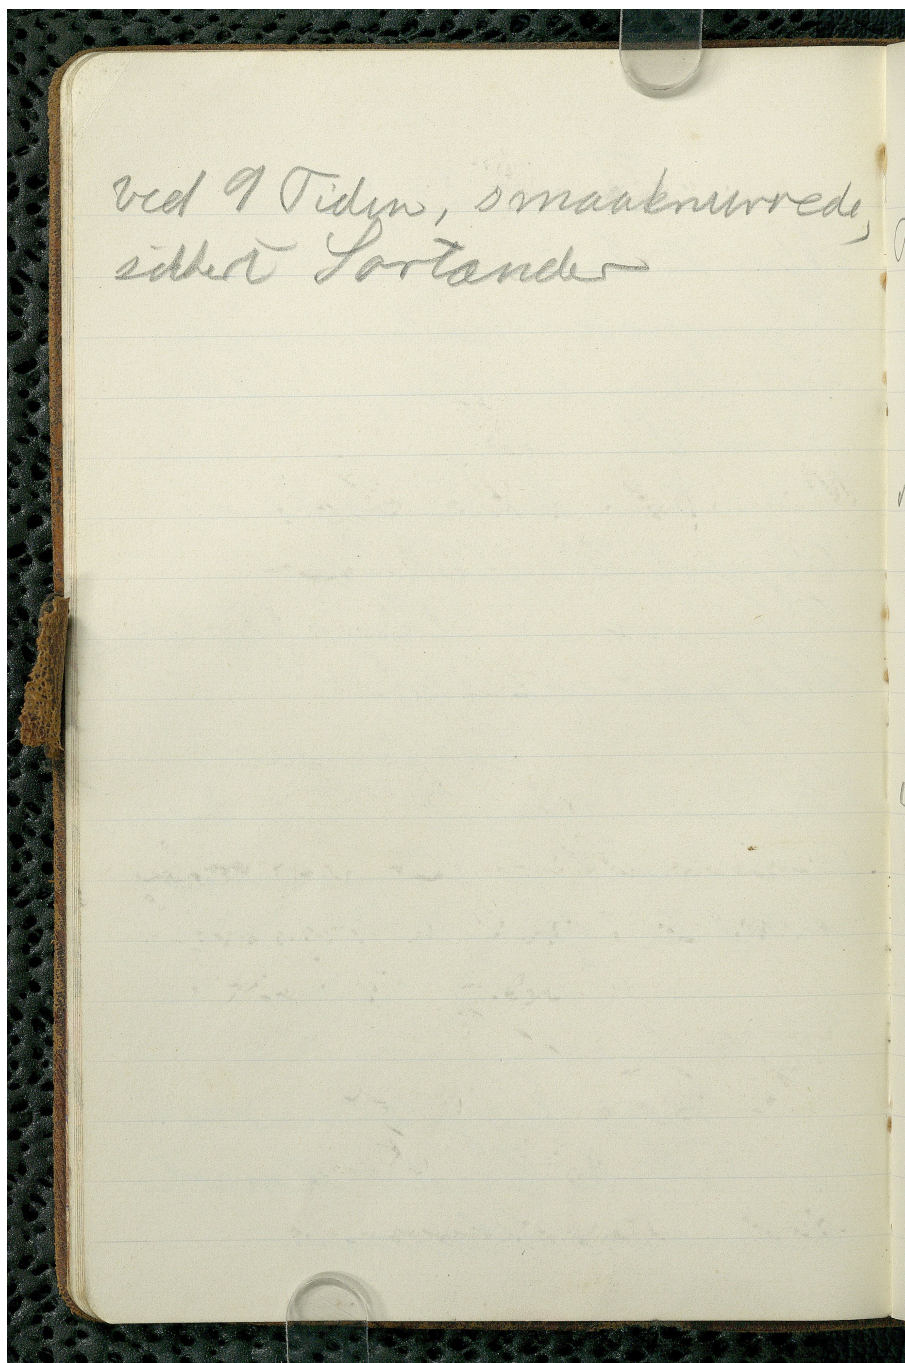 ved 9 Tiden, smaaknurrede,
sikkert Sortænder